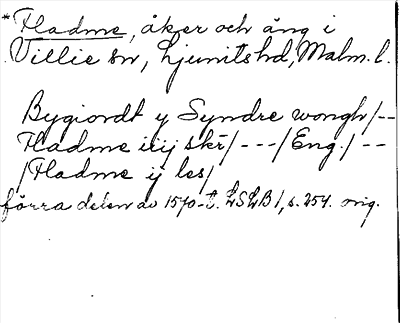 *Fladme, åker och äng i
Villie sn, Ljunits hd, Malm. l.
Bygiordt y Syndre wongh/--
Fladme iiij skr/---/Eng./--
/Fladme ij les/
förra delen av 1570-t. LSLB 1, s. 254. orig.